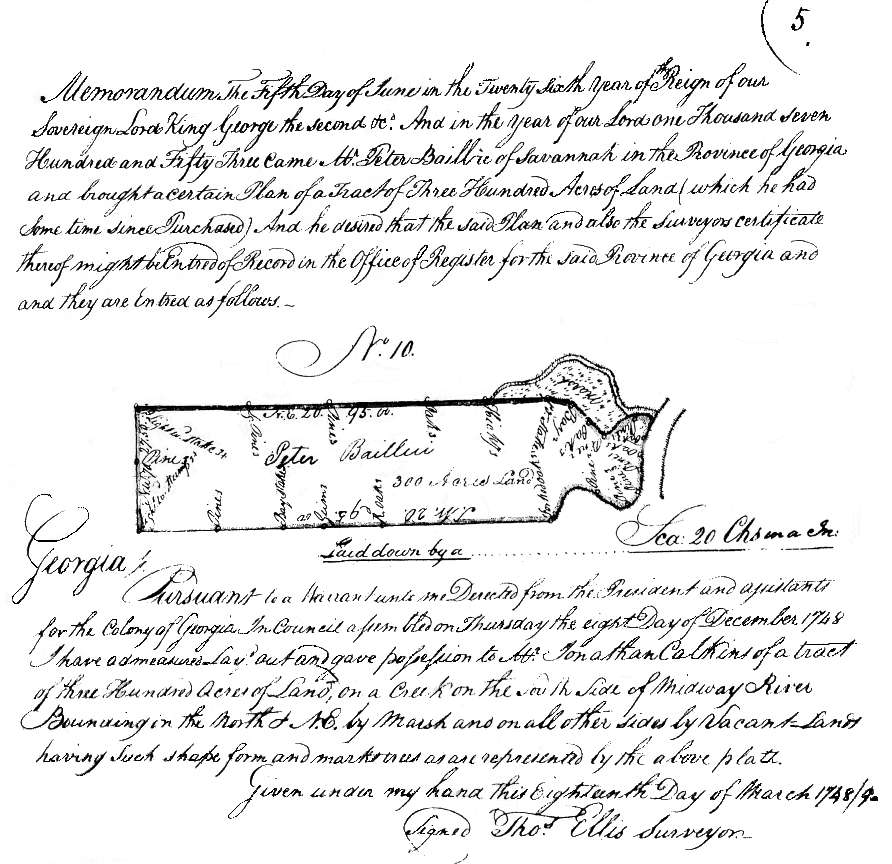 5.
Memorandum The Fifth Day of June in the Twenty Sixth Year of th Reign of our
Sovereign Lord King George the second &c. And in the year of our Lord one Thousand seven
Hundred and Fifty Three came Mr. Peter Baillie of Savannah in the Province of Georgia
and brought a certain Plan of a Tract of Three Hundred Acres of Land (which he had
Some time since Purchased) And he desired that the said Plan and also the Surveyors certificate
thereof might be Entred of Record in the Office of Register for the said Province of Georgia and
and they are Entred as follows. —
No. 10.
Marsh
N.E. 20 95.00
Pines
Oaks
Pine
Peter Baillie
300 Acres Land
Bay Stake
Pines
Oaks
Laid down by a .......... Sca: 20 Chs in a In:
Georgia ss.
Pursuant to a Warrant unto me Directed from the President and assistants
for the Colony of Georgia In Council assembled on Thursday the eight Day of December 1748
I have admeasured Lay'd out and gave possession to Mr. Jonathan Calkins of a tract
of three Hundred Acres of Land, on a Creek on the South Side of Midway River
Bounding in the North & N.E. by Marsh and on all other sides by Vacant Lands
having Such shape form and marks trees as are represented by the above platt.
Given under my hand this Eighteenth Day of March 1748/9—
Signed Thos. Ellis Surveyor—